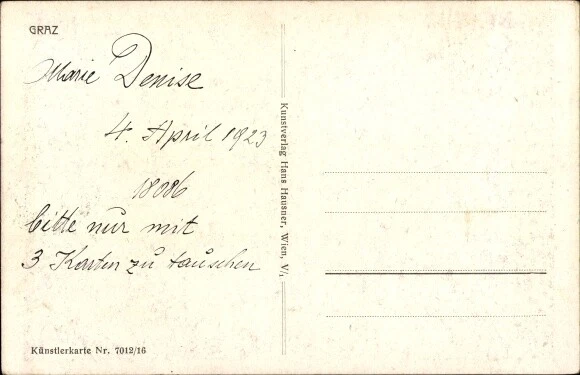 GRAZ
Marie Denise
4. April 1923
18086
bitte nur mit
3 Karten zu tauschen
Künstlerkarte Nr. 7012/16
Kunstverlag Hans Hausner, Wien, V/1